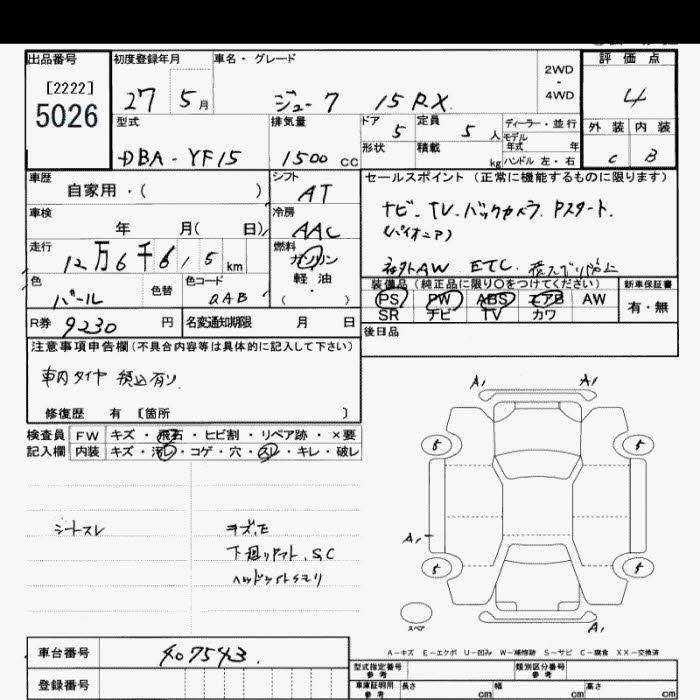 出品番号
[2222]
5026
初度登録年月
27 5 月
車名・グレード
ジューク 15RX
2WD
・
4WD
評価点
4
外装 内装
C B
型式
DBA-YF15
排気量
1500 CC
ドア
5
定員
5 人
ディーラー・並行
モデル
年式 年
形状
積載
kg
ハンドル 左・右
車歴
自家用・( )
シフト
AT
車検
年 月( 日)
冷房
AAC
走行
12万6千615 km
燃料
ガソリン
軽油
( )
色
パール
色替
色コード
QAB
R券 9230 円
名変通知期限 月 日
セールスポイント (正常に機能するものに限ります)
ナビ. TV. バックカメラ. Pスタート.
(パイオニア)
社外AW ETC.
装備品 (純正品に限り〇をつけてください)
PS PW ABS エアB AW
SR ナビ TV カワ
新車保証書
有・無
後日品
注意事項申告欄(不具合内容等は具体的に記入して下さい)
車内タイヤ 積込有り.
修復歴 有 [箇所 ]
検査員
記入欄
FW キズ・飛石・ヒビ割・リペア跡・×要
内装 キズ・汚レ・コゲ・穴・スレ・キレ・破レ
シートスレ
キズ.E
下廻りアト. S,C
ヘッドライトクモリ
A1 A1
5 5
A1
5 5
スペア
A1
A-キズ E-エクボ U-凹み W-補修跡 S-サビ C-腐食 XX-交換済
車台番号
407543.
登録番号
型式指定番号
参考
類別区分番号
参考
車庫証明用
参考
長さ cm
幅 cm
高さ cm